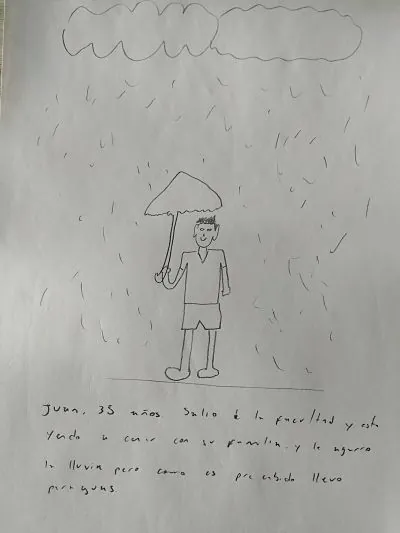 Juan, 35 años Salio d la facultad y esta
yendo a comer con su familia. y le agarro
la lluvia pero como es precabido llevo
paraguas.